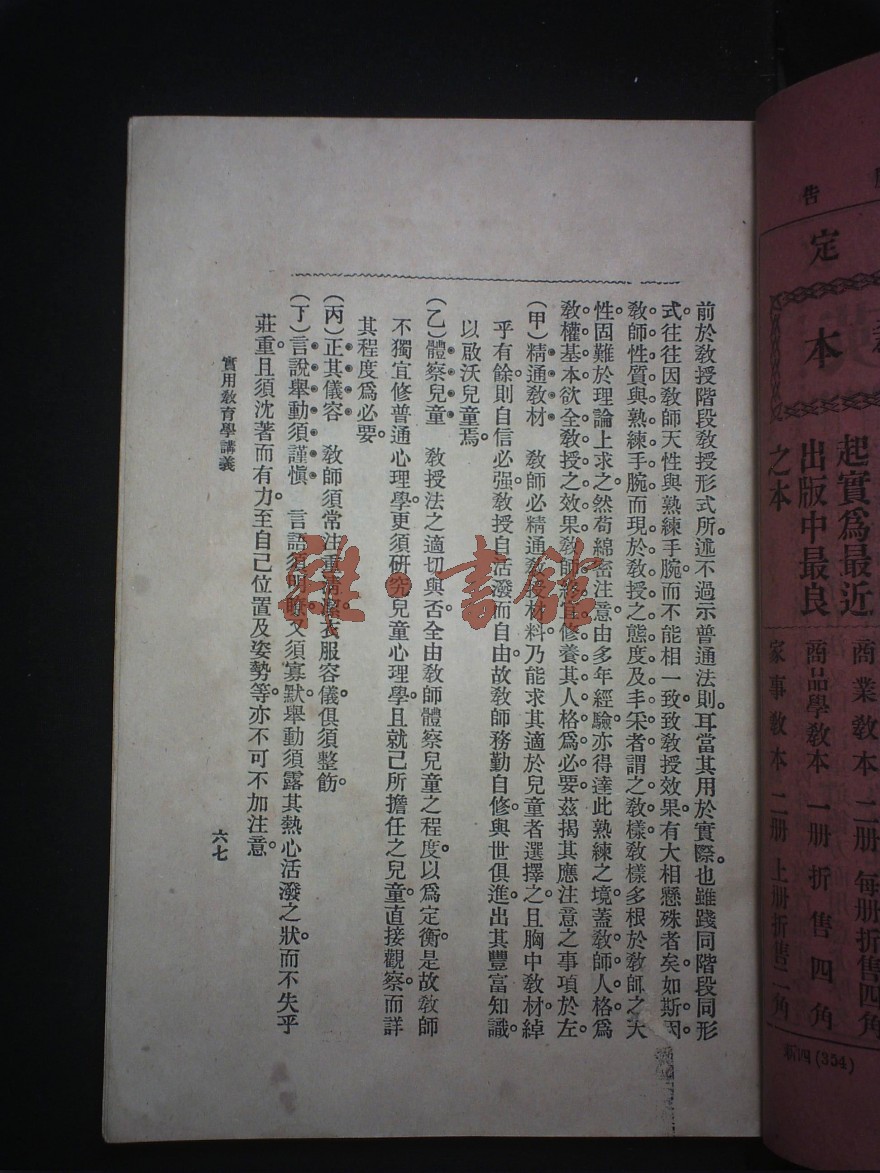 前於敎授階段敎授形式所述。不過示普通法則。耳當其用於實際。也雖踐同階段同形
式。往往因敎師天性與熟練手腕。而不能相一致。致敎授效果有大相懸殊者矣。如斯因
敎師性質與熟練手腕而現於敎授之態度及丰采者。謂之敎樣。敎樣多根於敎師之天
性。固難於理論上求之。然苟綿密注意。由多年經驗。亦得達此熟練之境。蓋敎師人格爲
敎權基本。欲全敎授之效果。敎師終宜修養其人格爲必要。茲揭其應注意之事項於左
(甲)精通敎材　敎師必精通敎授材料。乃能求其適於兒童者選擇之。且胸中敎材綽
乎有餘。則自信必强。敎授自活潑而自由。故敎師務勤自修。與世俱進。出其豐富知識。
以啟沃兒童焉。
(乙)體察兒童　敎授法之適切與否。全由敎師體察兒童之程度。以爲定衡。是故敎師
不獨宜修普通心理學。更須研究兒童心理學。且就己所擔任之兒童。直接觀察。而詳
其程度爲必要。
(丙)正其儀容　敎師須常注重淸潔。衣服容儀。俱須整飭。
(丁)言說舉動須謹愼　言語須明瞭。又須寡默。舉動須露其熱心活潑之狀。而不失乎
莊重。且須沈著而有力。至自己位置及姿勢等。亦不可不加注意。
實用敎育學講義
六七
雜·書館
告
定
本
起實爲最近
出版中最良
之本
商業敎本　二册　每册折售四角
商品學敎本　一册　折售四角
家事敎本　二册　上册折售二角
新四(354)